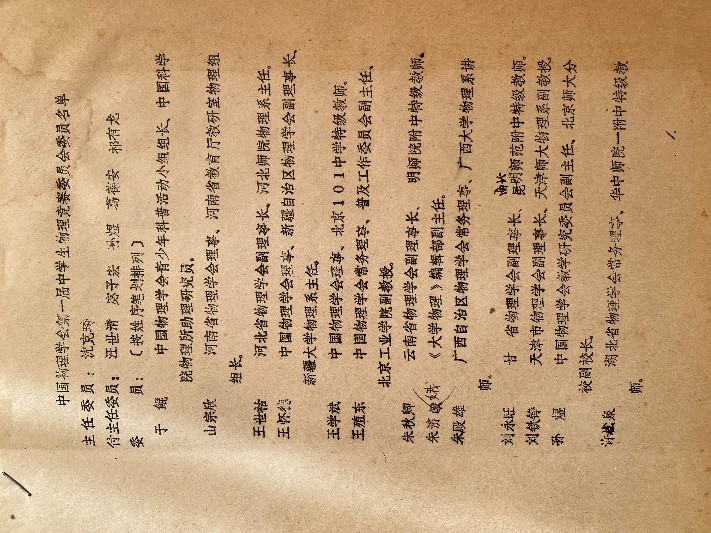 中国物理学会第一届中学生物理竞赛委员会委员名单
主任委员：沈克琦
付主任委员：汪世清 赵子宏 孙煜 葛葆安 郝有龙
委 员：（按姓序笔划排列）
于 鲲 中国物理学会青少年科普活动小组组长、中国科学
院物理所助理研究员。
山宗欣 河南省物理学会理事、河南省教育厅教研室物理组
组长。
王世祜 河北省物理学会副理事长、河北师院物理系主任。
王怀德 中国物理学会理事、新疆自治区物理学会副理事长、
新疆大学物理系主任。
王学斌 中国物理学会理事、北京101中学特级教师。
王殖东 中国物理学会常务理事、普及工作委员会副主任、
北京工业学院副教授。
朱秋卿 云南省物理学会副理事长、 明师院附中特级教师。
朱济 《大学物理》编辑部副主任。
朱殿雄 广西自治区物理学会常务理事、广西大学物理系讲
师。
刘永旺 甘 省物理学会副理事长、昆明师范附中特级教师。
刘铁铮 天津市物理学会副理事长、天津师大物理系副教授。
孙 煜 中国物理学会教学研究委员会副主任、北京师大分
校副校长。
许 泉 湖北省物理学会常务理事、华中师院一附中特级教
师。
1.